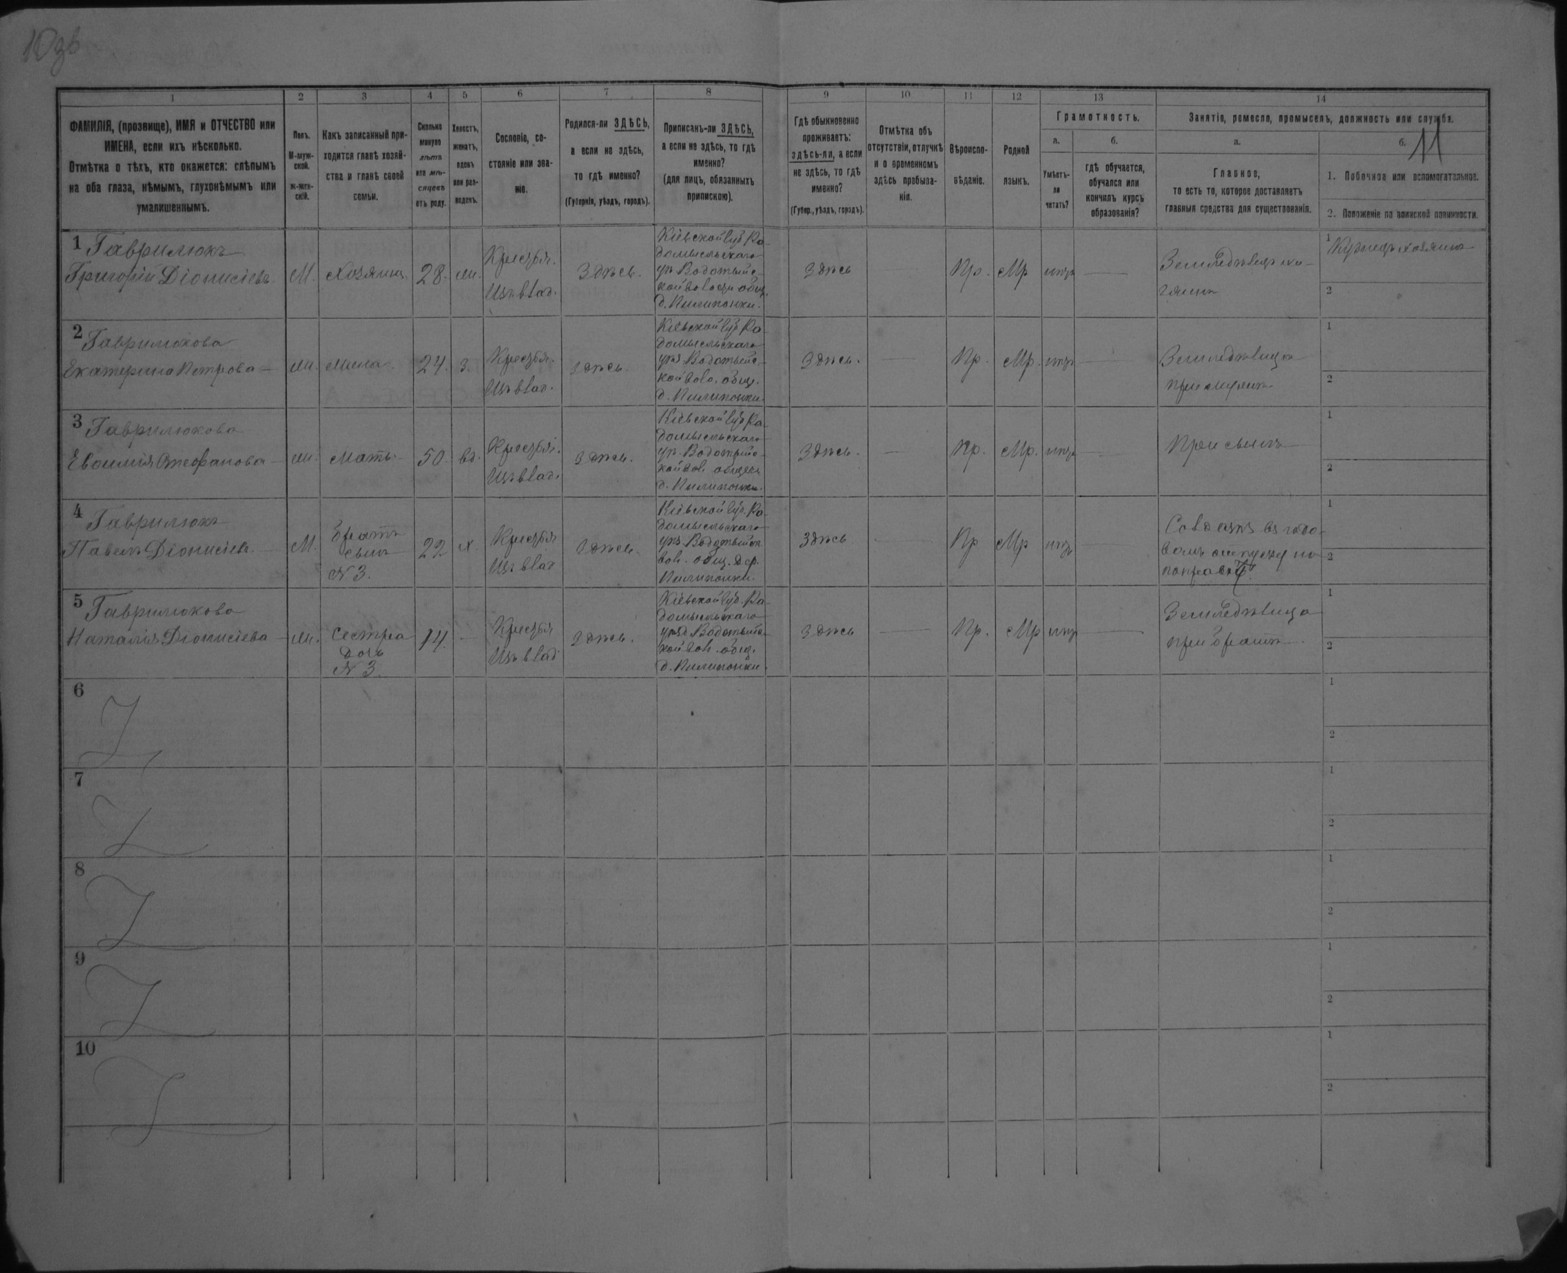 10 зв
1
2
3
4
5
6
7
8
9
10
11
12
13
14
ФАМИЛІЯ, (прозвище), ИМЯ и ОТЧЕСТВО или
ИМЕНА, если ихъ нѣсколько.
Отмѣтка о тѣхъ, кто окажется: слѣпымъ
на оба глаза, нѣмымъ, глухонѣмымъ или
умалишеннымъ.
Полъ.
М-муж-
ской.
ж-жен-
скій.
Какъ записанный при-
ходится главѣ хозяй-
ства и главѣ своей
семьи.
Сколько
минуло
лѣтъ
или мѣ-
сяцевъ
отъ роду.
Холостъ,
женатъ,
вдовъ
или раз-
веденъ.
Сословіе, со-
стояніе или зва-
ніе.
Родился-ли ЗДѢСЬ,
а если не здѣсь,
то гдѣ именно?
(Губернія, уѣздъ, городъ).
Приписанъ-ли ЗДѢСЬ,
а если не здѣсь, то гдѣ
именно?
(для лицъ, обязанныхъ
припискою).
Гдѣ обыкновенно
проживаетъ:
здѣсь-ли, а если
не здѣсь, то гдѣ
именно?
(Губер., уѣздъ, городъ).
Отмѣтка объ
отсутствіи, отлучкѣ
и о временномъ
здѣсь пребыва-
ніи.
Вѣроиспо-
вѣданіе.
Родной
языкъ.
Грамотность.
а.
Умѣетъ-
ли
читать?
б.
гдѣ обучается,
обучался или
кончилъ курсъ
образованія?
Занятіе, ремесло, промыселъ, должность или служба.
а.
Главное,
то есть то, которое доставляетъ
главныя средства для существованія.
б.
11
1. Побочное или вспомогательное.
2. Положеніе по воинской повинности.
1 Гаврилюкъ
Григорій Діонисіевъ
М. хозяинъ 28. ж. Крестья.
Изъ влад.
Здѣсь.
Кіевской губ Ра-
домысльскаго
уѣз Водотыйс-
кой волости общ.
д. Пилипонки.
Здѣсь — Пр. Мр нѣтъ —
Земледѣлецъ хо-
зяинъ
1 Кузнецъ хозяинъ
2
2 Гаврилюкова
Екатерина Петрова
ж. жена 24. з. Крестья.
Изъ влад.
здѣсь.
Кіевской губ Ра-
домысльскаго
уѣз Водотыйс-
кой воло. общ.
д. Пилипонки.
Здѣсь. — Пр. Мр. нѣтъ
Земледѣлица
при мужѣ
1
2
3 Гаврилюкова
Евфимія Стефанова
ж. мать 50 вд. Крестья.
Изъ влад.
здѣсь.
Кіевской губ Ра-
домысльскаго
уѣз. Водотыйс-
кой вол. общес
д. Пилипонки.
Здѣсь. — Пр. Мр. нѣтъ
При сынѣ
1
2
4 Гаврилюкъ
Павелъ Діонисіев
М. братъ
сынъ
N 3.
22 х. Крестья
Изъ влад
здѣсь.
Кіевской губ. Ра-
домысльскаго
уѣз. Водотыйск
вол. общ. дер.
Пилипонки.
Здѣсь — Пр Мр нѣтъ
1
2
5 Гаврилюкова
Наталія Діонисіева
ж. сестра
дочь
N 3.
14. — Крестья
Изъ влад
здѣсь.
Кіевской губ. Ра-
домысльскаго
уѣзд Водотыйс-
кой вол. общ.
д. Пилипонки.
Здѣсь — Пр. Мр нѣтъ —
Земледѣлица
при братѣ
1
2
6
1
2
7
1
2
8
1
2
9
1
2
10
1
2